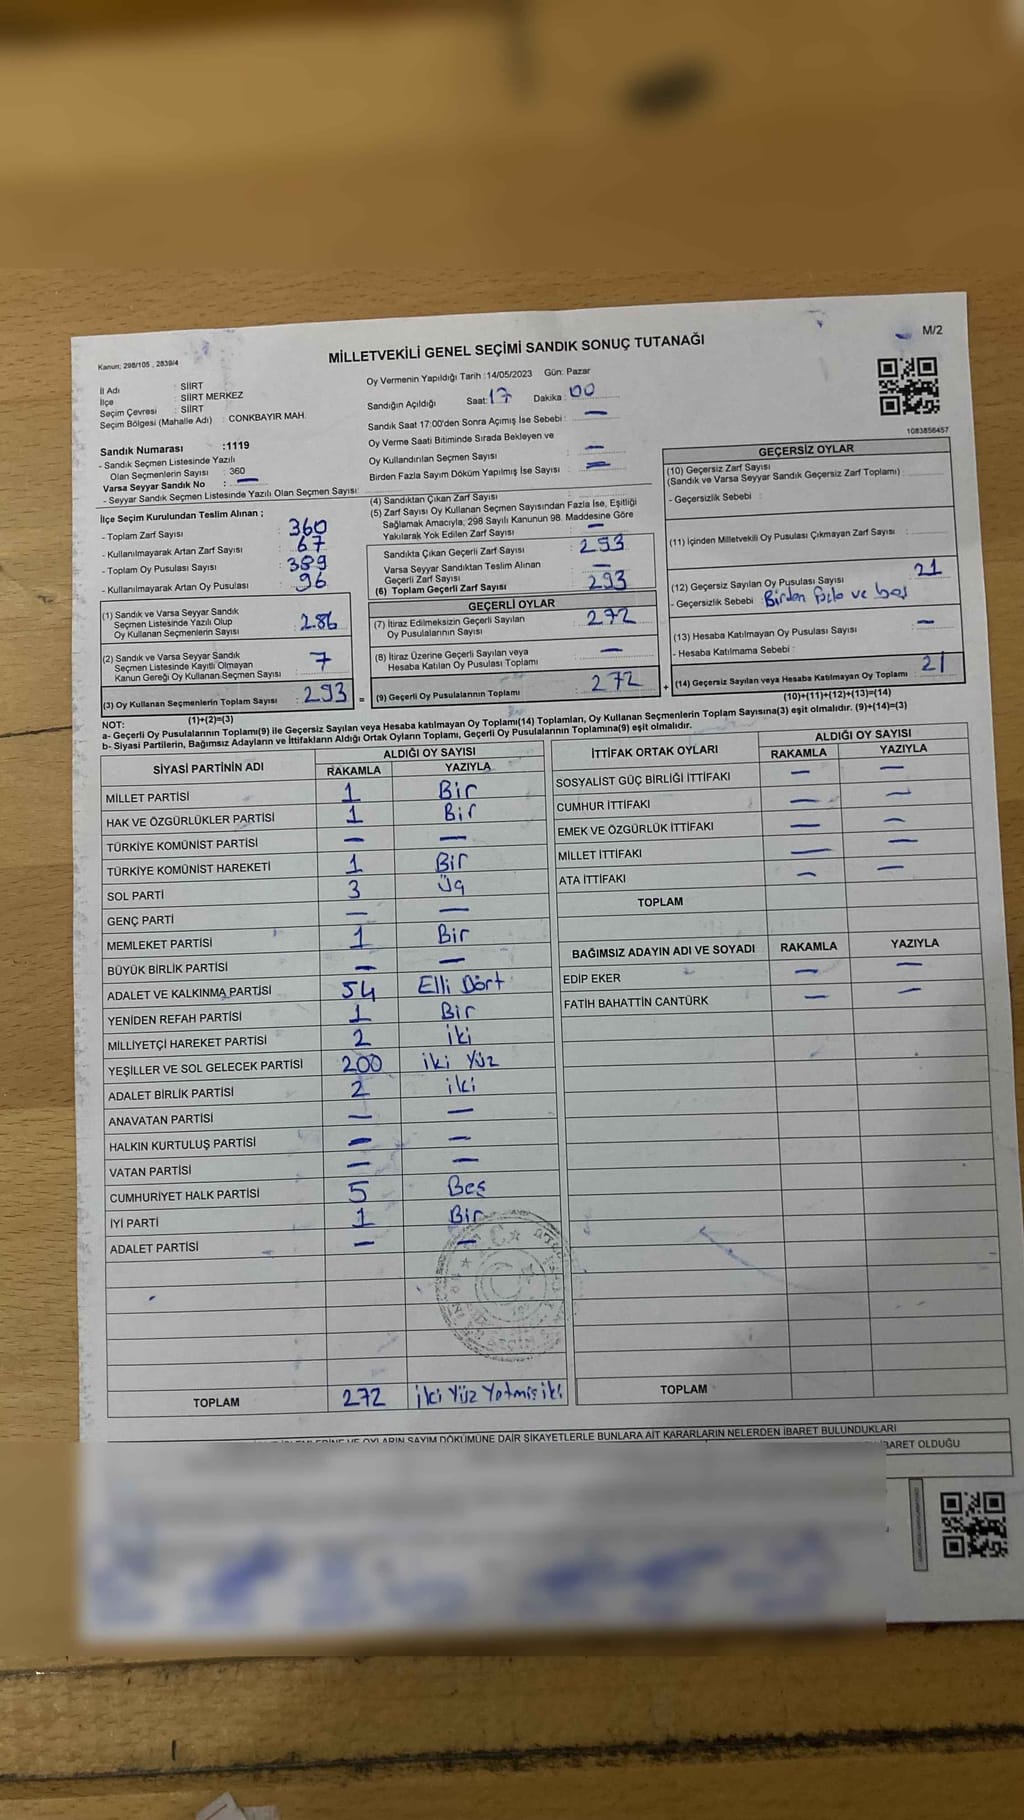 Kanun: 298/105 , 2839/4
MİLLETVEKİLİ GENEL SEÇİMİ SANDIK SONUÇ TUTANAĞI
M/2
İl Adı : SİİRT
İlçe : SİİRT MERKEZ
Seçim Çevresi : SİİRT
Seçim Bölgesi (Mahalle Adı) : CONKBAYIR MAH.
Sandık Numarası :1119
- Sandık Seçmen Listesinde Yazılı
Olan Seçmenlerin Sayısı : 360
Varsa Seyyar Sandık No : —
- Seyyar Sandık Seçmen Listesinde Yazılı Olan Seçmen Sayısı:
Oy Vermenin Yapıldığı Tarih :14/05/2023 Gün: Pazar
Sandığın Açıldığı Saat: 17 Dakika : 00
Sandık Saat 17:00'den Sonra Açımış İse Sebebi : —
Oy Verme Saati Bitiminde Sırada Bekleyen ve
Oy Kullandırılan Seçmen Sayısı : —
Birden Fazla Sayım Döküm Yapılmış İse Sayısı : —
1083856457
İlçe Seçim Kurulundan Teslim Alınan ;
- Toplam Zarf Sayısı : 360
- Kullanılmayarak Artan Zarf Sayısı : 67
- Toplam Oy Pusulası Sayısı : 389
- Kullanılmayarak Artan Oy Pusulası : 96
(1) Sandık ve Varsa Seyyar Sandık
Seçmen Listesinde Yazılı Olup
Oy Kullanan Seçmenlerin Sayısı : 286
(2) Sandık ve Varsa Seyyar Sandık
Seçmen Listesinde Kayıtlı Olmayan
Kanun Gereği Oy Kullanan Seçmen Sayısı : 7
(3) Oy Kullanan Seçmenlerin Toplam Sayısı : 293
(1)+(2)=(3)
(4) Sandıktan Çıkan Zarf Sayısı
(5) Zarf Sayısı Oy Kullanan Seçmen Sayısından Fazla İse, Eşitliği
Sağlamak Amacıyla, 298 Sayılı Kanunun 98. Maddesine Göre
Yakılarak Yok Edilen Zarf Sayısı : —
Sandıkta Çıkan Geçerli Zarf Sayısı : 293
Varsa Seyyar Sandıktan Teslim Alınan
Geçerli Zarf Sayısı : —
(6) Toplam Geçerli Zarf Sayısı : 293
GEÇERLİ OYLAR
(7) İtiraz Edilmeksizin Geçerli Sayılan
Oy Pusulalarının Sayısı : 272
(8) İtiraz Üzerine Geçerli Sayılan veya
Hesaba Katılan Oy Pusulası Toplamı : —
= (9) Geçerli Oy Pusulalarının Toplamı : 272
GEÇERSİZ OYLAR
(10) Geçersiz Zarf Sayısı
(Sandık ve Varsa Seyyar Sandık Geçersiz Zarf Toplamı) :
- Geçersizlik Sebebi :
(11) İçinden Milletvekili Oy Pusulası Çıkmayan Zarf Sayısı :
(12) Geçersiz Sayılan Oy Pusulası Sayısı : 21
- Geçersizlik Sebebi : Birden fazla ve boş
(13) Hesaba Katılmayan Oy Pusulası Sayısı : —
- Hesaba Katılmama Sebebi :
+ (14) Geçersiz Sayılan veya Hesaba Katılmayan Oy Toplamı : 21
(10)+(11)+(12)+(13)=(14)
NOT:
a- Geçerli Oy Pusulalarının Toplamı(9) ile Geçersiz Sayılan veya Hesaba katılmayan Oy Toplamı(14) Toplamları, Oy Kullanan Seçmenlerin Toplam Sayısına(3) eşit olmalıdır. (9)+(14)=(3)
b- Siyasi Partilerin, Bağımsız Adayların ve İttifakların Aldığı Ortak Oyların Toplamı, Geçerli Oy Pusulalarının Toplamına(9) eşit olmalıdır.
SİYASİ PARTİNİN ADI ALDIĞI OY SAYISI
RAKAMLA YAZIYLA
MİLLET PARTİSİ 1 Bir
HAK VE ÖZGÜRLÜKLER PARTİSİ 1 Bir
TÜRKİYE KOMÜNİST PARTİSİ — —
TÜRKİYE KOMÜNİST HAREKETİ 1 Bir
SOL PARTİ 3 Üç
GENÇ PARTİ — —
MEMLEKET PARTİSİ 1 Bir
BÜYÜK BİRLİK PARTİSİ — —
ADALET VE KALKINMA PARTİSİ 54 Elli Dört
YENİDEN REFAH PARTİSİ 1 Bir
MİLLİYETÇİ HAREKET PARTİSİ 2 iki
YEŞİLLER VE SOL GELECEK PARTİSİ 200 iki Yüz
ADALET BİRLİK PARTİSİ 2 iki
ANAVATAN PARTİSİ — —
HALKIN KURTULUŞ PARTİSİ — —
VATAN PARTİSİ — —
CUMHURİYET HALK PARTİSİ 5 Beş
İYİ PARTİ 1 Bir
ADALET PARTİSİ — —
TOPLAM 272 İki Yüz Yetmiş iki
İTTİFAK ORTAK OYLARI ALDIĞI OY SAYISI
RAKAMLA YAZIYLA
SOSYALİST GÜÇ BİRLİĞİ İTTİFAKI — —
CUMHUR İTTİFAKI — —
EMEK VE ÖZGÜRLÜK İTTİFAKI — —
MİLLET İTTİFAKI — —
ATA İTTİFAKI — —
TOPLAM
BAĞIMSIZ ADAYIN ADI VE SOYADI RAKAMLA YAZIYLA
EDİP EKER — —
FATİH BAHATTİN CANTÜRK — —
TOPLAM
VE OYLARIN SAYIM DÖKÜMÜNE DAİR ŞİKAYETLERLE BUNLARA AİT KARARLARIN NELERDEN İBARET BULUNDUKLARI
OLDUĞU